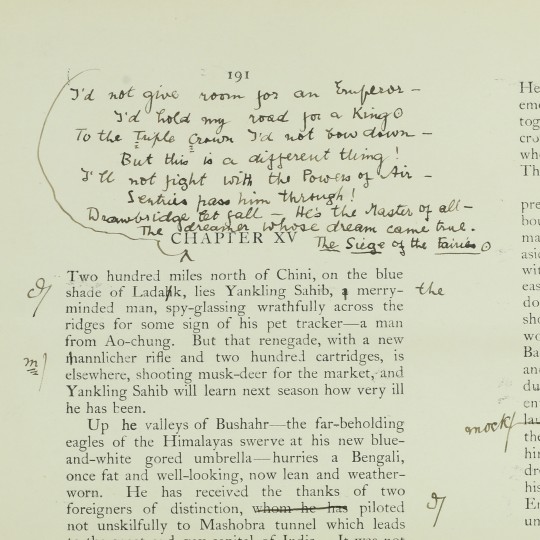 191
I'd not give room for an Emperor —
I'd hold my road for a King.
To the Triple Crown I'd not bow down —
But this is a different thing!
I'll not fight with the Powers of Air —
Sentries pass him through!
Drawbridge let fall — He's the Master of all —
The dreamer whose dream came true.
CHAPTER XV
The Siege of the Fairies.
Two hundred miles north of Chini, on the blue
shade of Ladahk, lies Yankling Sahib, a merry- the
minded man, spy-glassing wrathfully across the
ridges for some sign of his pet tracker—a man
from Ao-chung. But that renegade, with a new
m
mannlicher rifle and two hundred cartridges, is
elsewhere, shooting musk-deer for the market, and
Yankling Sahib will learn next season how very ill
he has been.
Up he valleys of Bushahr—the far-beholding
eagles of the Himalayas swerve at his new blue-
and-white gored umbrella—hurries a Bengali,
once fat and well-looking, now lean and weather-
worn. He has received the thanks of two
foreigners of distinction, whom he has piloted
not unskilfully to Mashobra tunnel which leads
He
The
mock